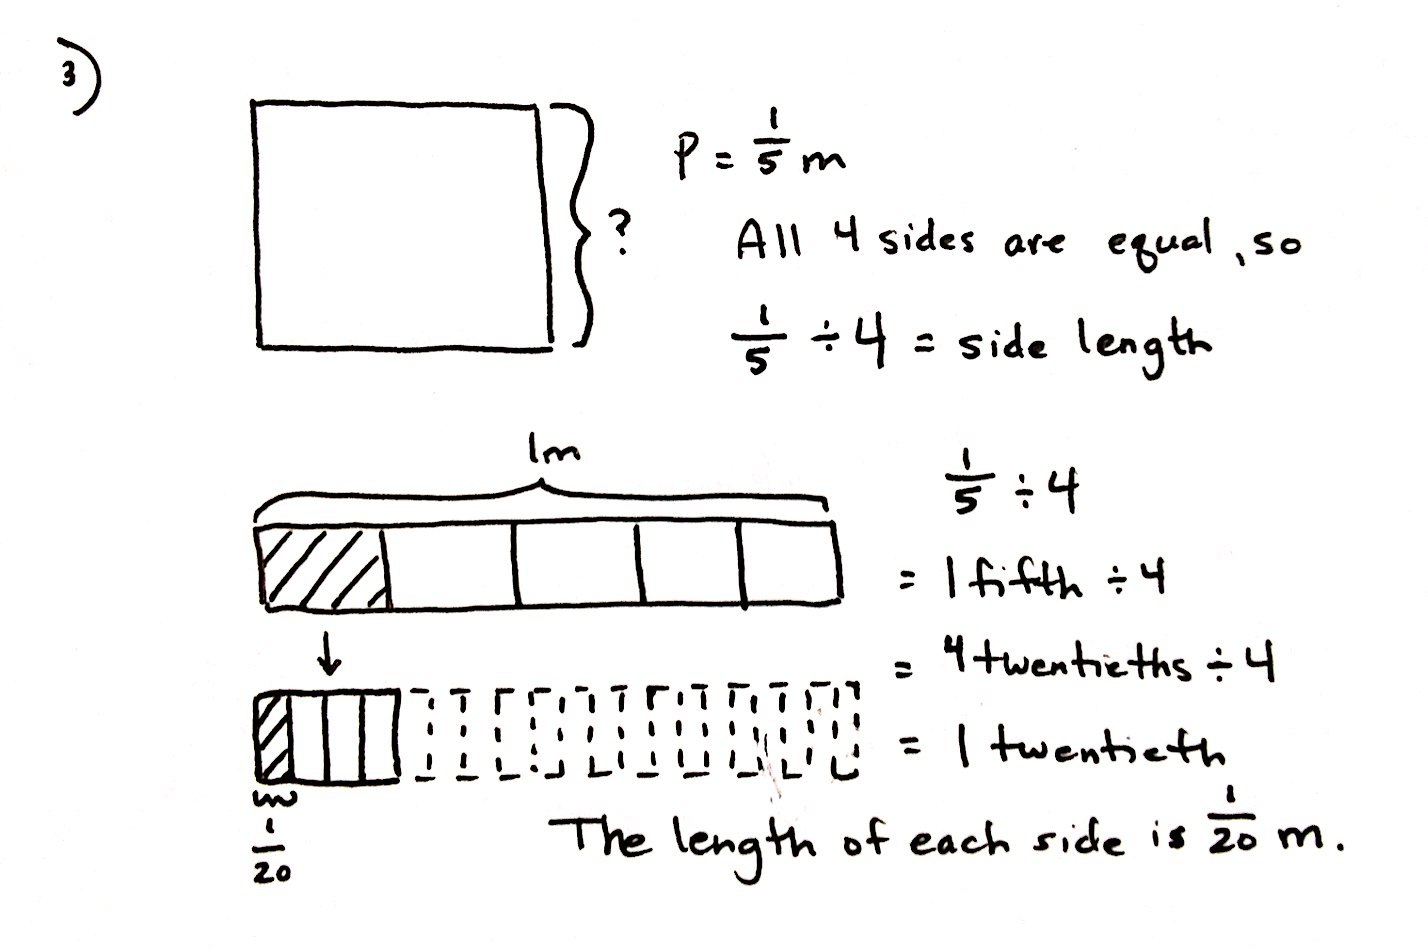 3)
P = 1/5 m
?
All 4 sides are equal, so
1/5 ÷ 4 = side length
1m
1/5 ÷ 4
= 1 fifth ÷ 4
= 4 twentieths ÷ 4
= 1 twentieth
1/20
The length of each side is 1/20 m.